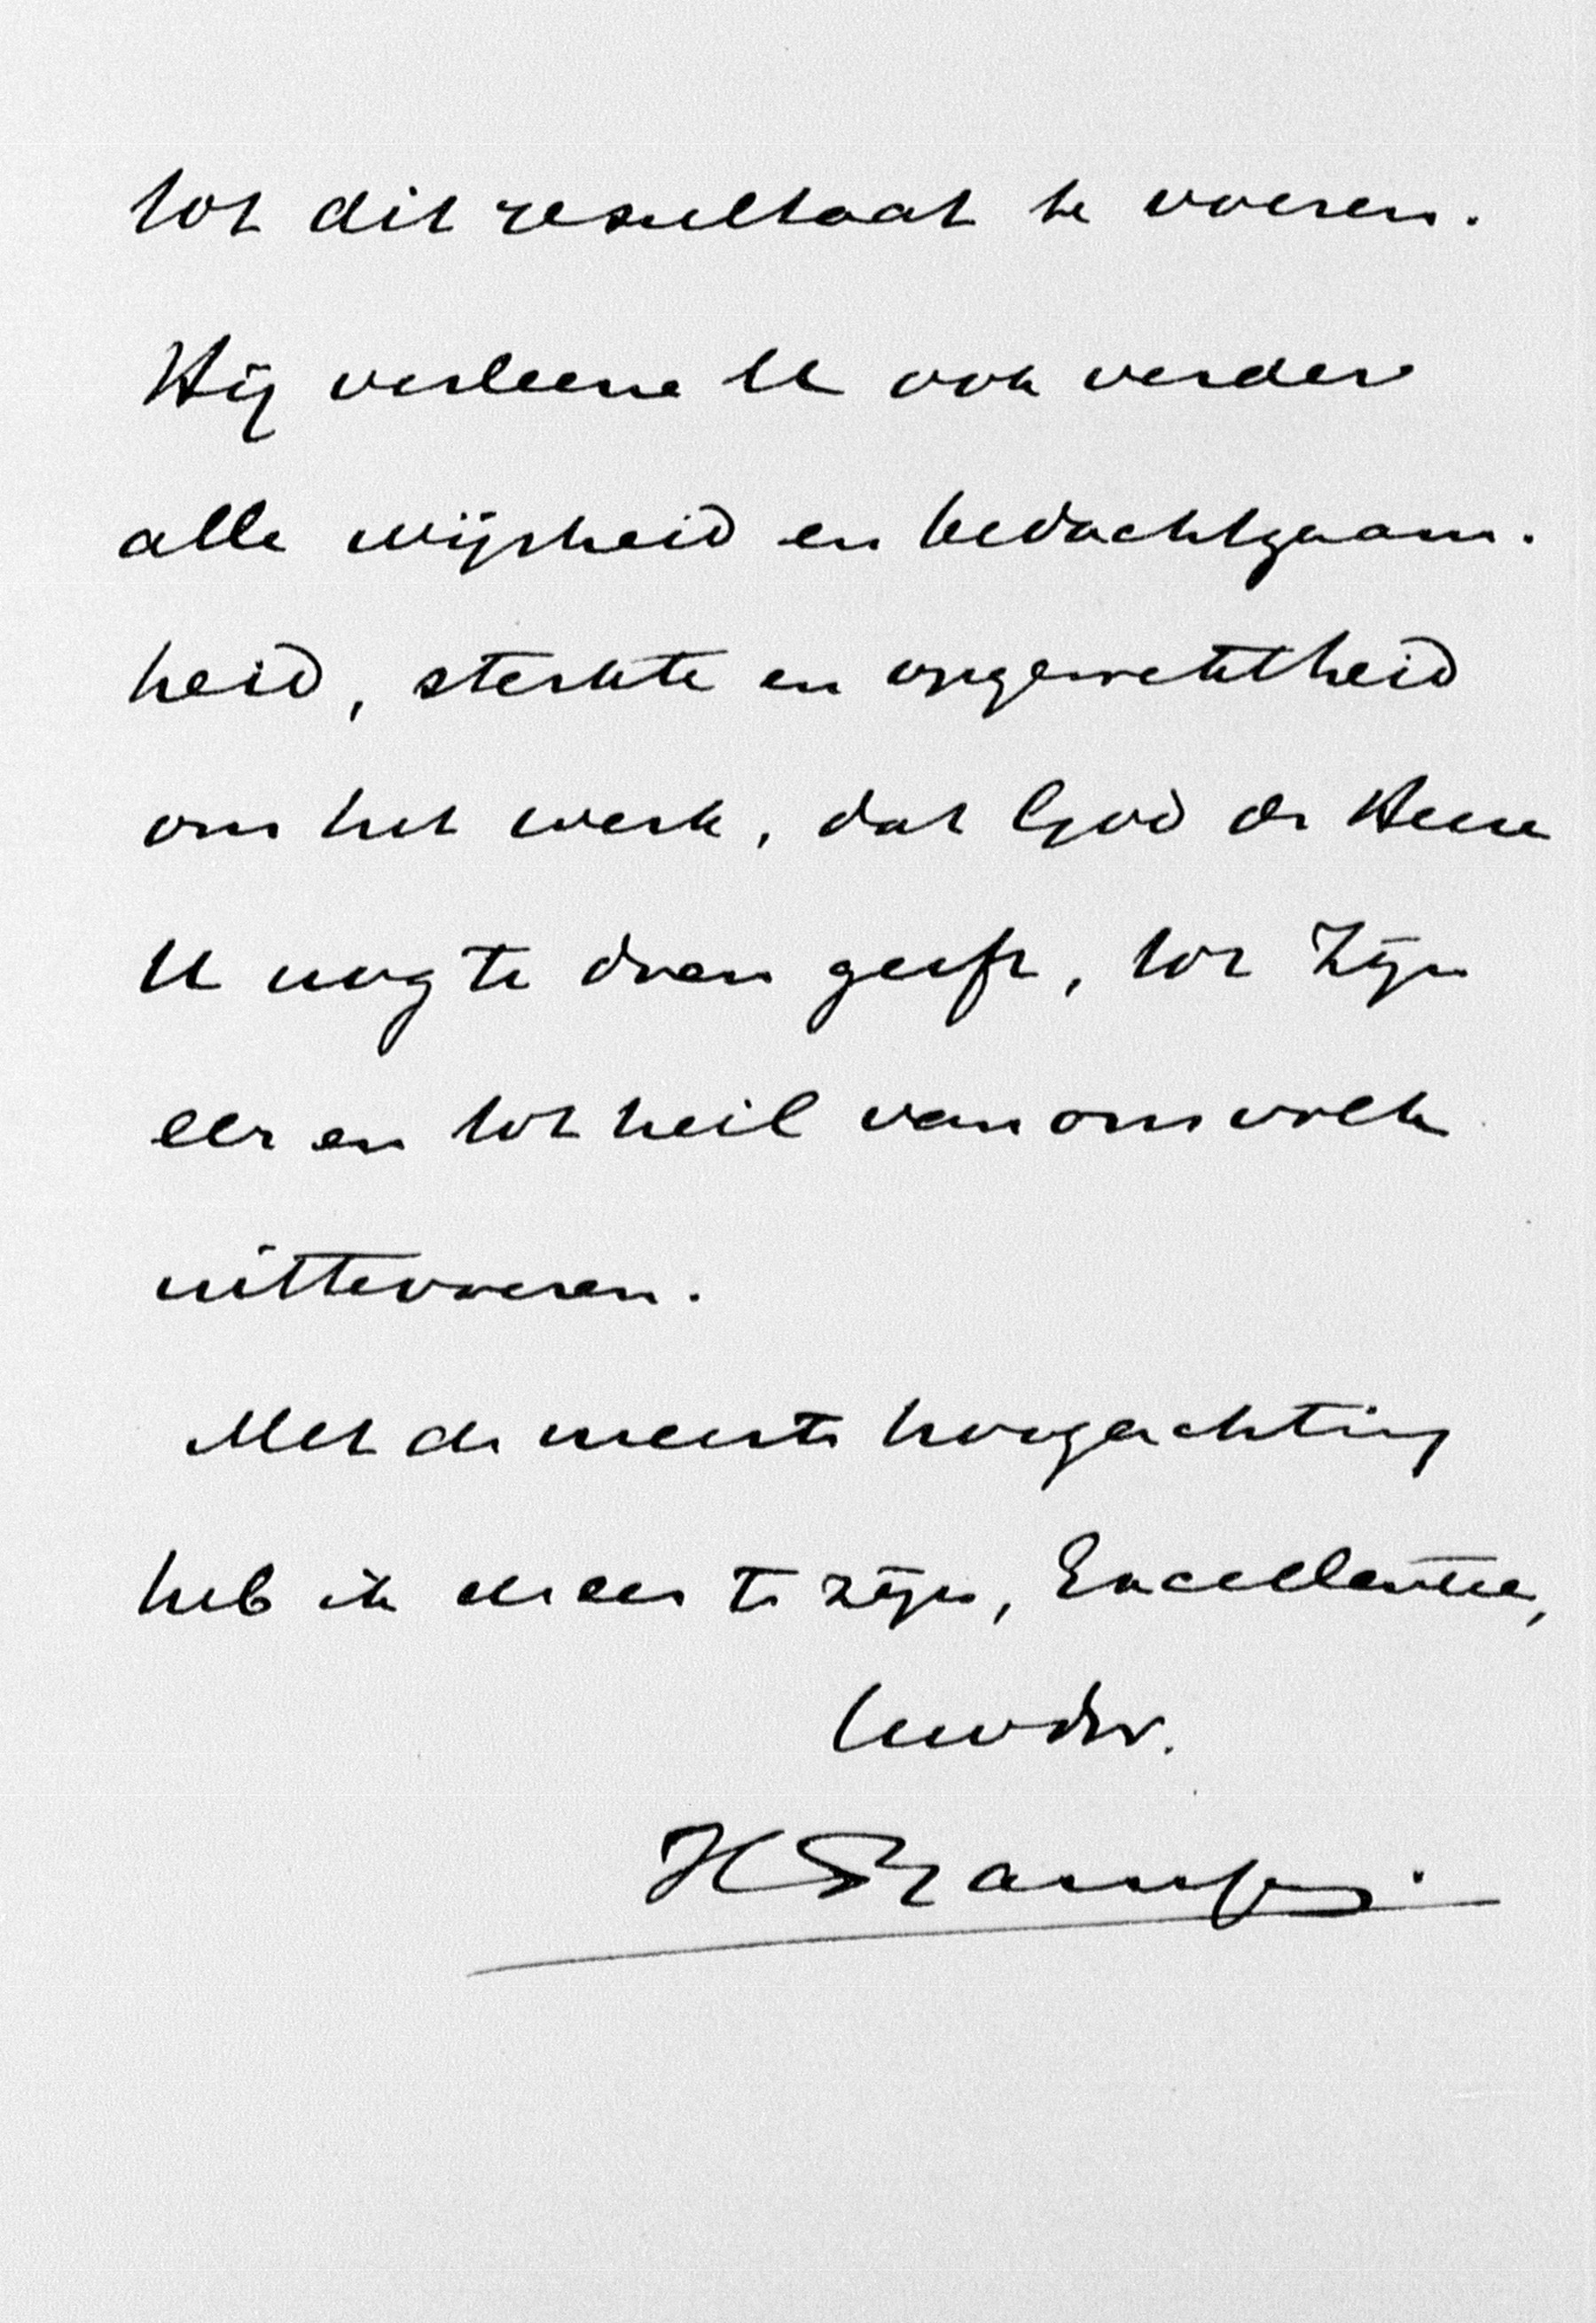 tot dit resultaat te voeren.
Hij verleene U ook verder
alle wijsheid en bedachtzaam-
heid, sterkte en opgewektheid
om het werk, dat God de Heere
U nog te doen geeft, tot Zijn
eer en tot heil van ons volk
uittevoeren.
Met de meeste hoogachting
heb ik de eer te zijn, Excellentie,
Uwdw.